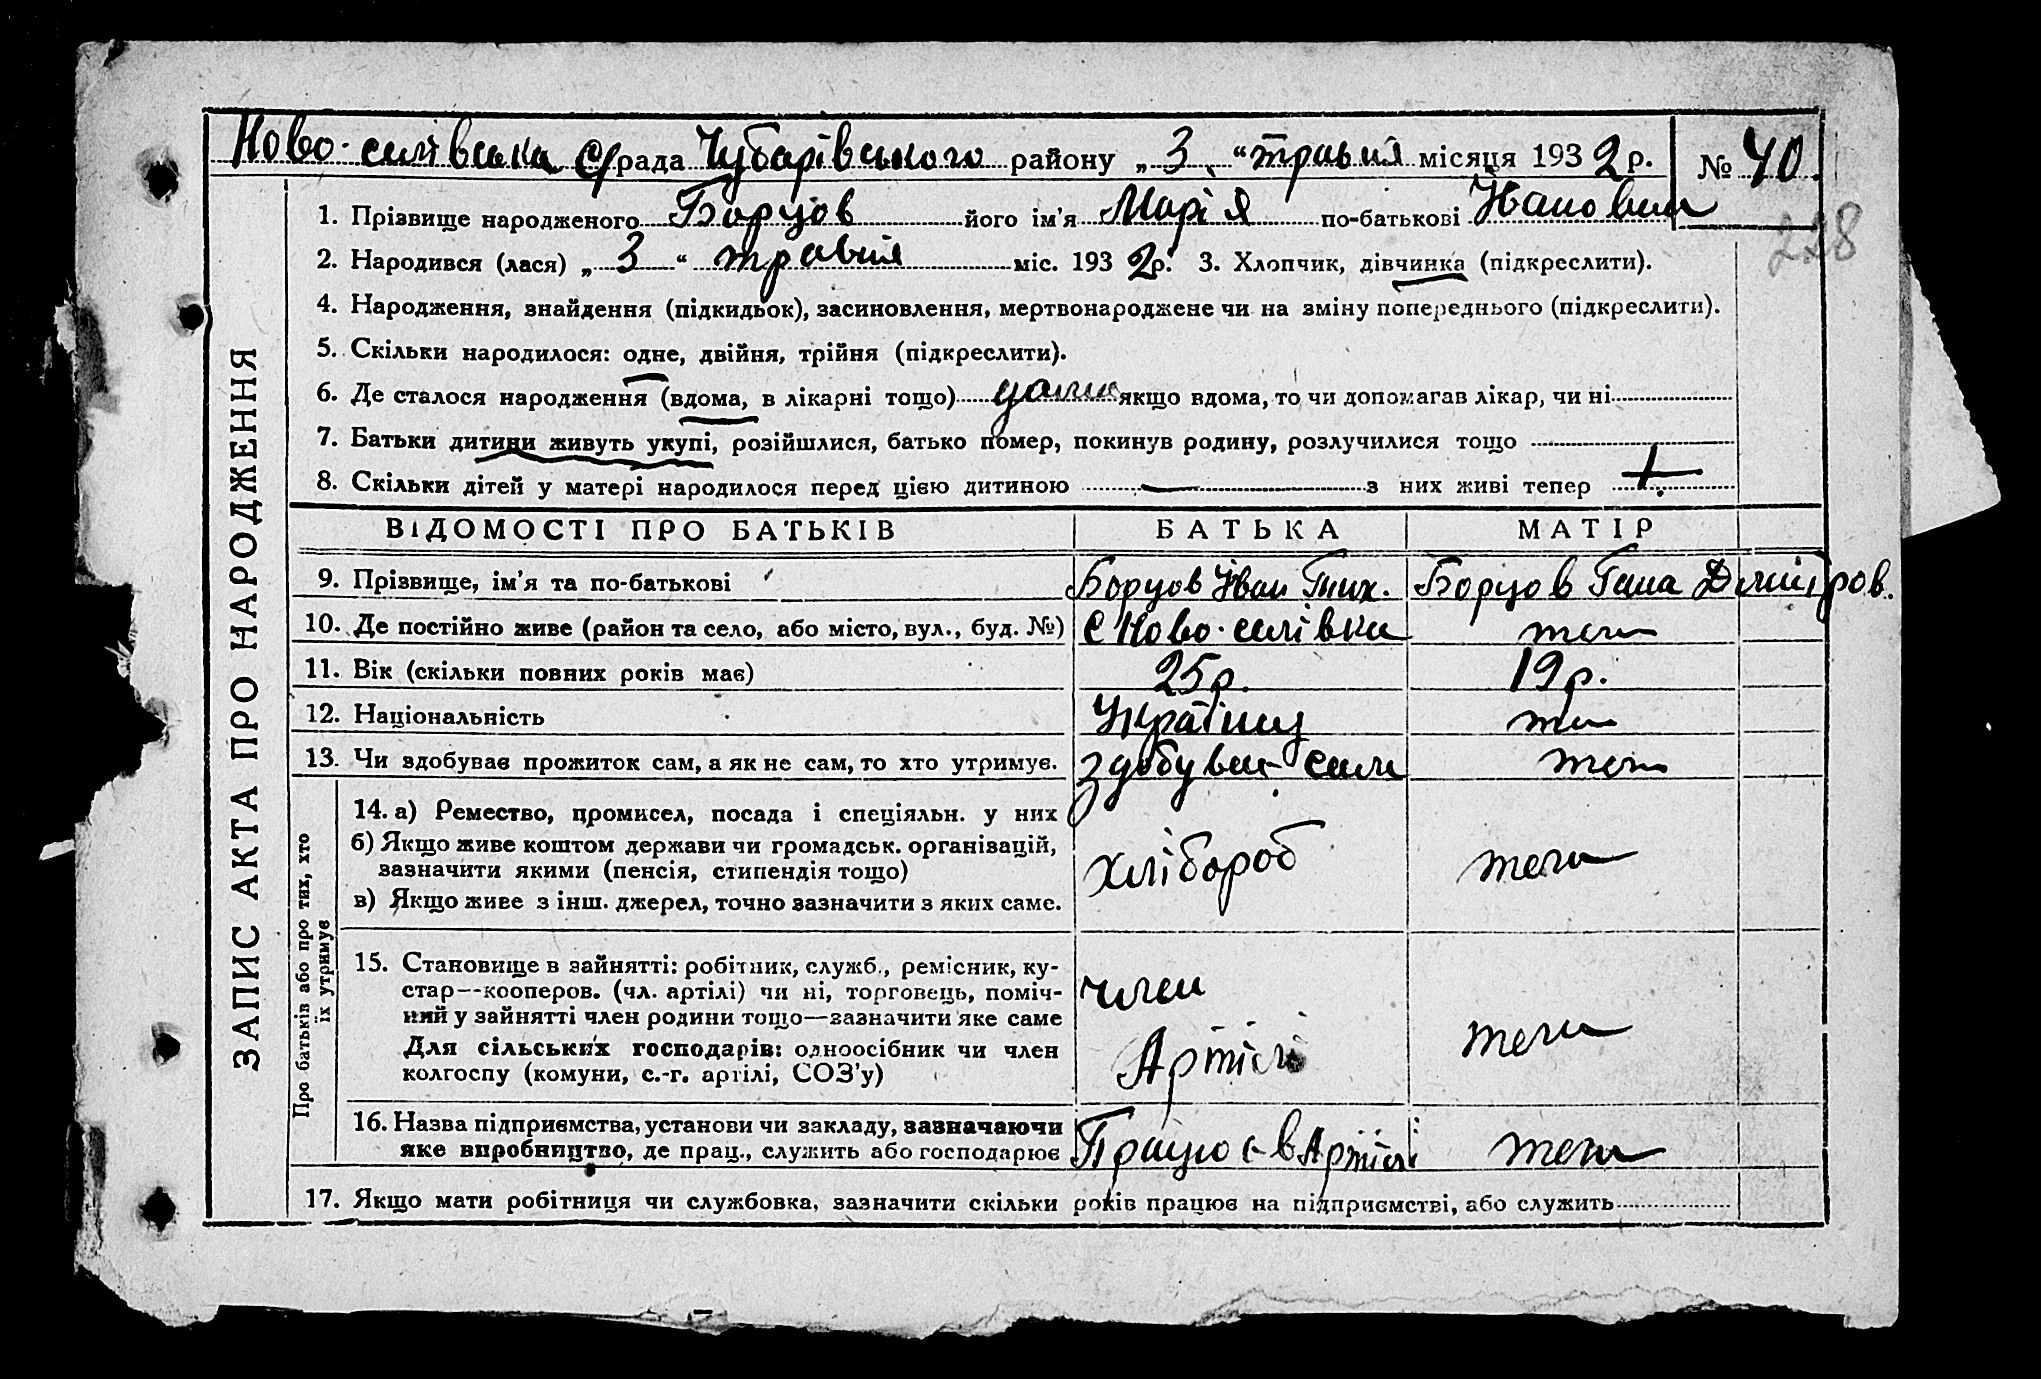 Ново-силівська с/рада Чубарівського району „ 3 “ травня місяця 1932 р. № 40
1. Прізвище народженого Борцов його ім'я Марія по-батькові Івановна
228
2. Народився (лася) „ 3 “ травня міс. 1932 р. 3. Хлопчик, дівчинка (підкреслити).
4. Народження, знайдення (підкидьок), засиновлення, мертвонароджене чи на зміну попереднього (підкреслити).
5. Скільки народилося: одне, двійня, трійня (підкреслити).
6. Де сталося народження (вдома, в лікарні тощо) дома якщо вдома, то чи допомагав лікар, чи ні
7. Батьки дитини живуть укупі, розійшлися, батько помер, покинув родину, розлучилися тощо
8. Скільки дітей у матері народилося перед цією дитиною — з них живі тепер +
ЗАПИС АКТА ПРО НАРОДЖЕННЯ
ВІДОМОСТІ ПРО БАТЬКІВ БАТЬКА МАТІР
9. Прізвище, ім'я та по-батькові Борцов Іван Тих. Борцов Гана Дмитров.
10. Де постійно живе (район та село, або місто, вул., буд. №) с Ново-силівка теж
11. Вік (скільки повних років має) 25 р. 19 р.
12. Національність Українц теж
13. Чи здобуває прожиток сам, а як не сам, то хто утримує. здобуває сам теж
Про батьків або про тих, хто
їх утримує
14. а) Ремество, промисел, посада і спеціяльн. у них
б) Якщо живе коштом держави чи громадськ. організацій,
зазначити якими (пенсія, стипендія тощо)
хлібороб теж
в) Якщо живе з інш. джерел, точно зазначити з яких саме.
15. Становище в зайнятті: робітник, служб., ремісник, ку-
стар—кооперов. (чл. артілі) чи ні, торговець, поміч-
ний у зайнятті член родини тощо—зазначити яке саме
Для сільських господарів: одноосібник чи член
колгоспу (комуни, с.-г. артілі, СОЗ'у)
член
Артілі теж
16. Назва підприємства, установи чи закладу, зазначаючи
яке виробництво, де прац., служить або господарює
Працює в Артілі теж
17. Якщо мати робітниця чи службовка, зазначити скільки років працює на підприємстві, або служить